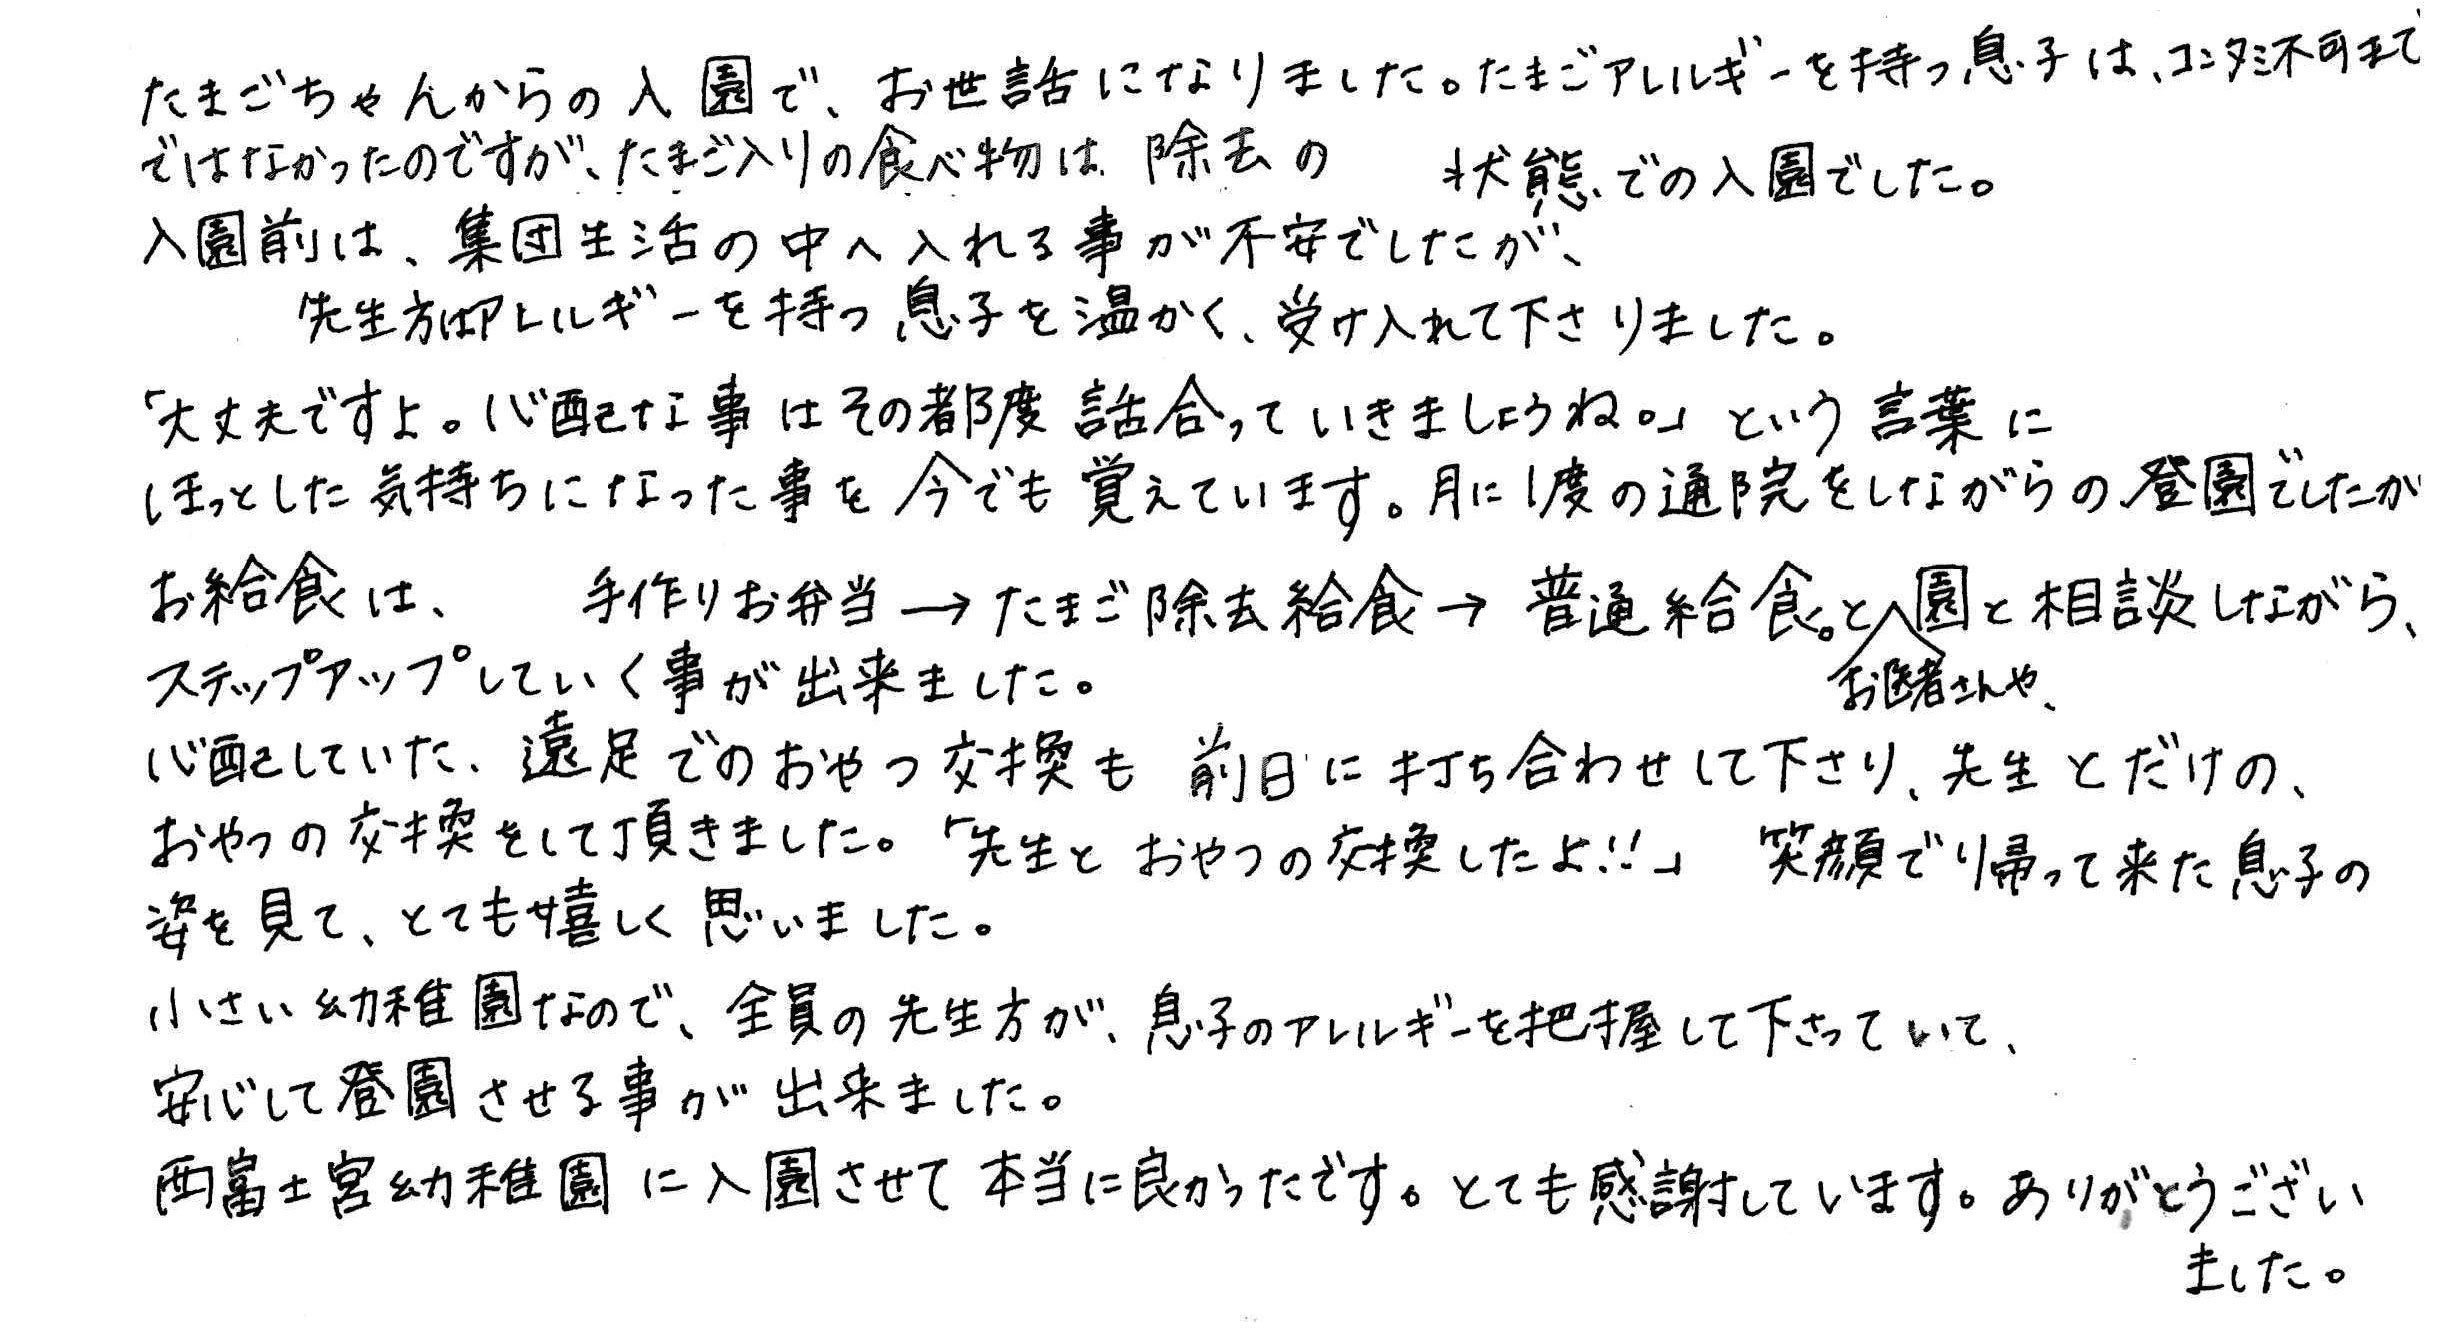 たまごちゃんからの入園で、お世話になりました。たまごアレルギーを持つ息子は、コンタミ不可まで
ではなかったのですが、たまご入りの食べ物は除去の 状態での入園でした。
入園前は、集団生活の中へ入れる事が不安でしたが、
先生方はアレルギーを持つ息子を温かく、受け入れて下さりました。
「大丈夫ですよ。心配な事はその都度話合っていきましょうね。」という言葉に
ほっとした気持ちになった事を今でも覚えています。月に1度の通院をしながらの登園でしたが
お給食は、 手作りお弁当→たまご除去給食→普通給食。と園と相談しながら、
お医者さんや、
ステップアップしていく事が出来ました。
心配していた、遠足でのおやつ交換も前日に打ち合わせして下さり、先生とだけの、
おやつの交換をして頂きました。「先生とおやつの交換したよ!!」 笑顔で帰って来た息子の
姿を見て、とても嬉しく思いました。
小さい幼稚園なので、全員の先生方が、息子のアレルギーを把握して下さっていて、
安心して登園させる事が出来ました。
西富士宮幼稚園に入園させて本当に良かったです。とても感謝しています。ありがとうござい
ました。